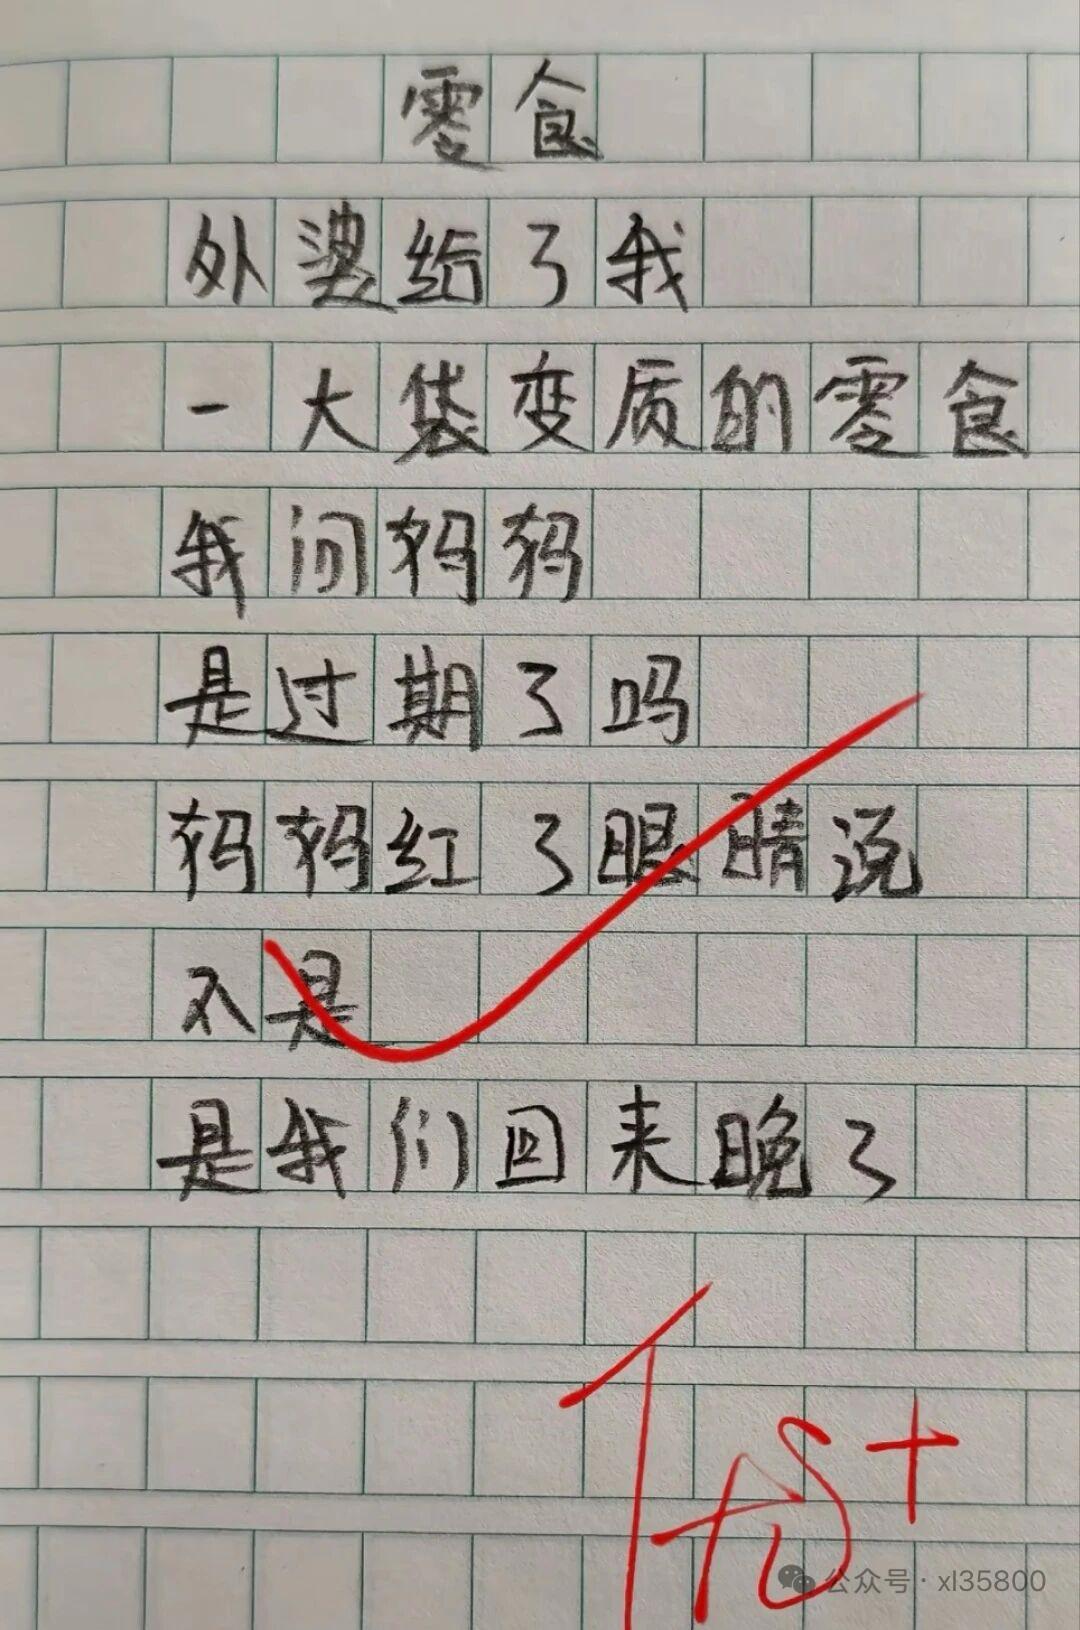 零食
外婆给了我
一大袋变质的零食
我问妈妈
是过期了吗
妈妈红了眼睛说
不是
是我们回来晚了
优+
公众号·xl35800